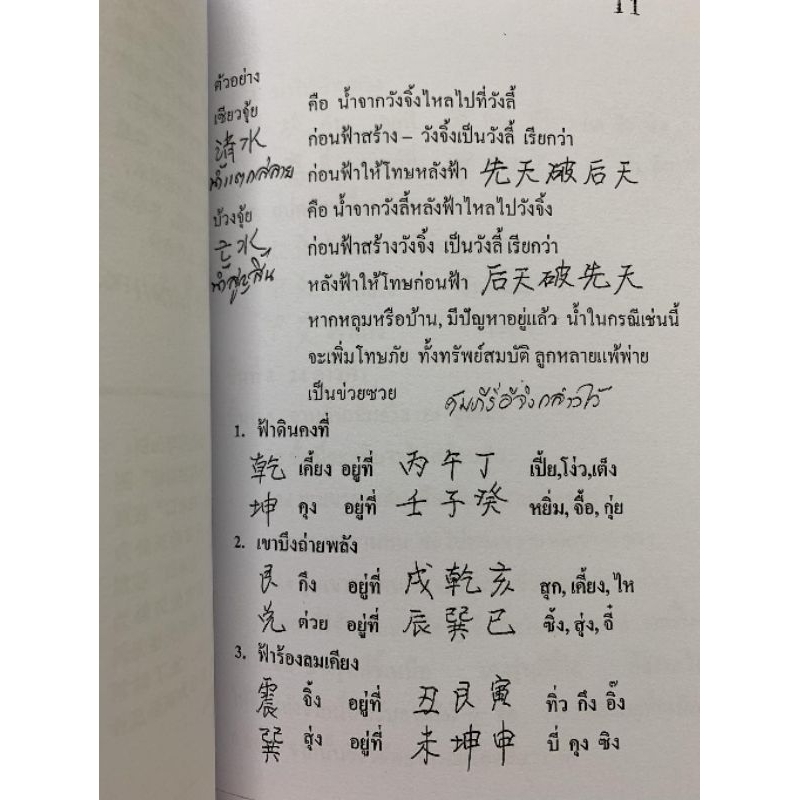 11
ตัวอย่าง
เซียวจุ้ย คือ น้ำจากวังจิ้งไหลไปที่วังลี้
消水 ก่อนฟ้าสร้าง – วังจิ้งเป็นวังลี้ เรียกว่า
น้ำแตกสลาย ก่อนฟ้าให้โทษหลังฟ้า 先天破后天
บ้วงจุ้ย คือ น้ำจากวังลี้หลังฟ้าไหลไปวังจิ้ง
亡水 ก่อนฟ้าสร้างวังจิ้ง เป็นวังลี้ เรียกว่า
น้ำสูญสิ้น หลังฟ้าให้โทษก่อนฟ้า 后天破先天
หากหลุมหรือบ้าน, มีปัญหาอยู่แล้ว น้ำในกรณีเช่นนี้
จะเพิ่มโทษภัย ทั้งทรัพย์สมบัติ ลูกหลายแพ้พ่าย
เป็นข่วยซวย คัมภีร์อี้จิงกล่าวไว้
1. ฟ้าดินคงที่
乾 เคี้ยง อยู่ที่ 丙午丁 เปี้ย,โง่ว,เต็ง
坤 คุง อยู่ที่ 壬子癸 หยิ่ม, จื้อ, กุ่ย
2. เขาบึงถ่ายพลัง
艮 กึง อยู่ที่ 戌乾亥 สุก, เคี้ยง, ไห
兑 ต่วย อยู่ที่ 辰巽巳 ซิ้ง, สุ่ง, จี๋
3. ฟ้าร้องลมเคียง
震 จิ้ง อยู่ที่ 丑艮寅 ทิ่ว กึง อิ๊ง
巽 สุ่ง อยู่ที่ 未坤申 บี่ คุง ซิง